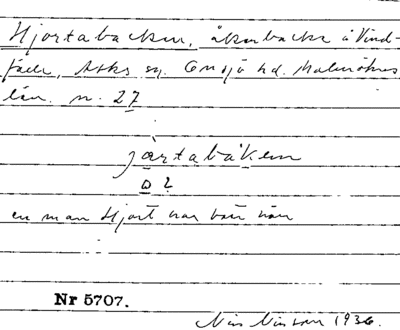 Hjortabacken, åkerbacke å Vind-
fälle, Asks sn. Onsjö hd. Malmöhus
län. n. 27
jortabakem
en man Hjort har bott här
Nr 5707.
Nils Nilsson 1936.